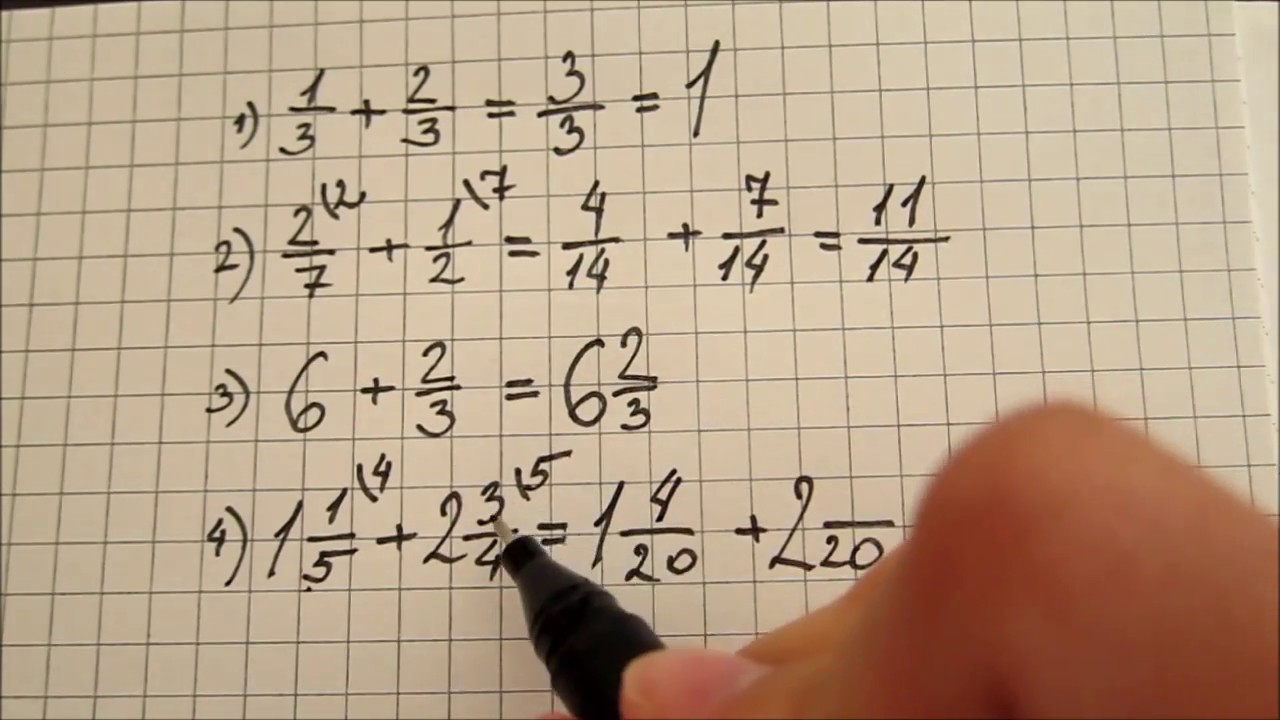 1) 1/3 + 2/3 = 3/3 = 1
2) 2/7 \2 + 1/2 \7 = 4/14 + 7/14 = 11/14
3) 6 + 2/3 = 6 2/3
4) 1 1/5 \4 + 2 3/4 \5 = 1 4/20 + 2 /20